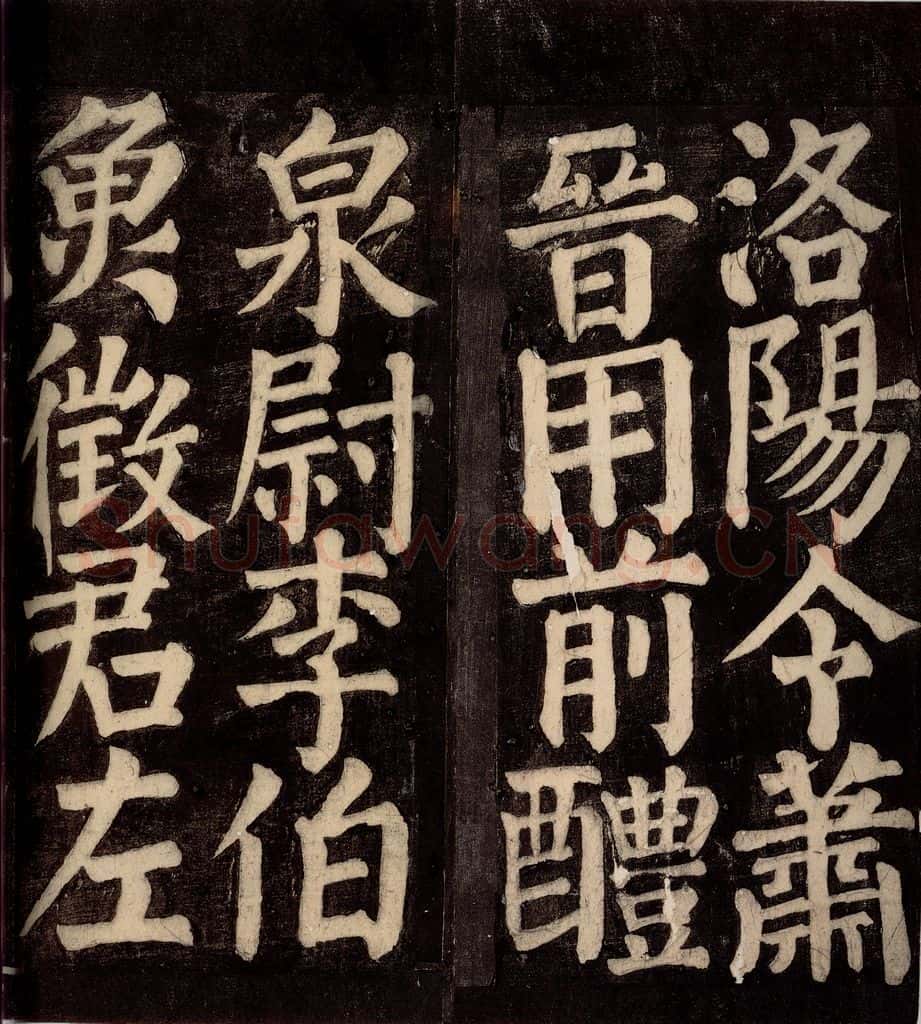 洛陽令蕭
晉用前醴
泉尉李伯
魚徵君左
Shufawang.CN